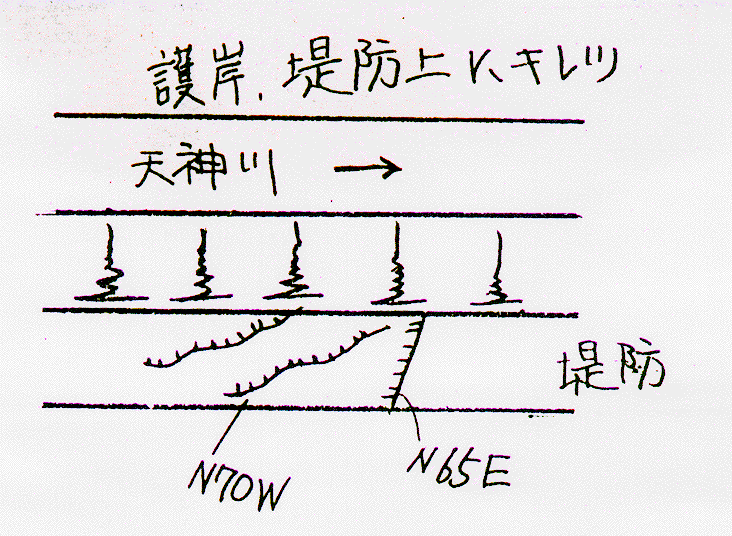 護岸、堤防上に、キレツ
天神川 →
堤防
N70W
N65E